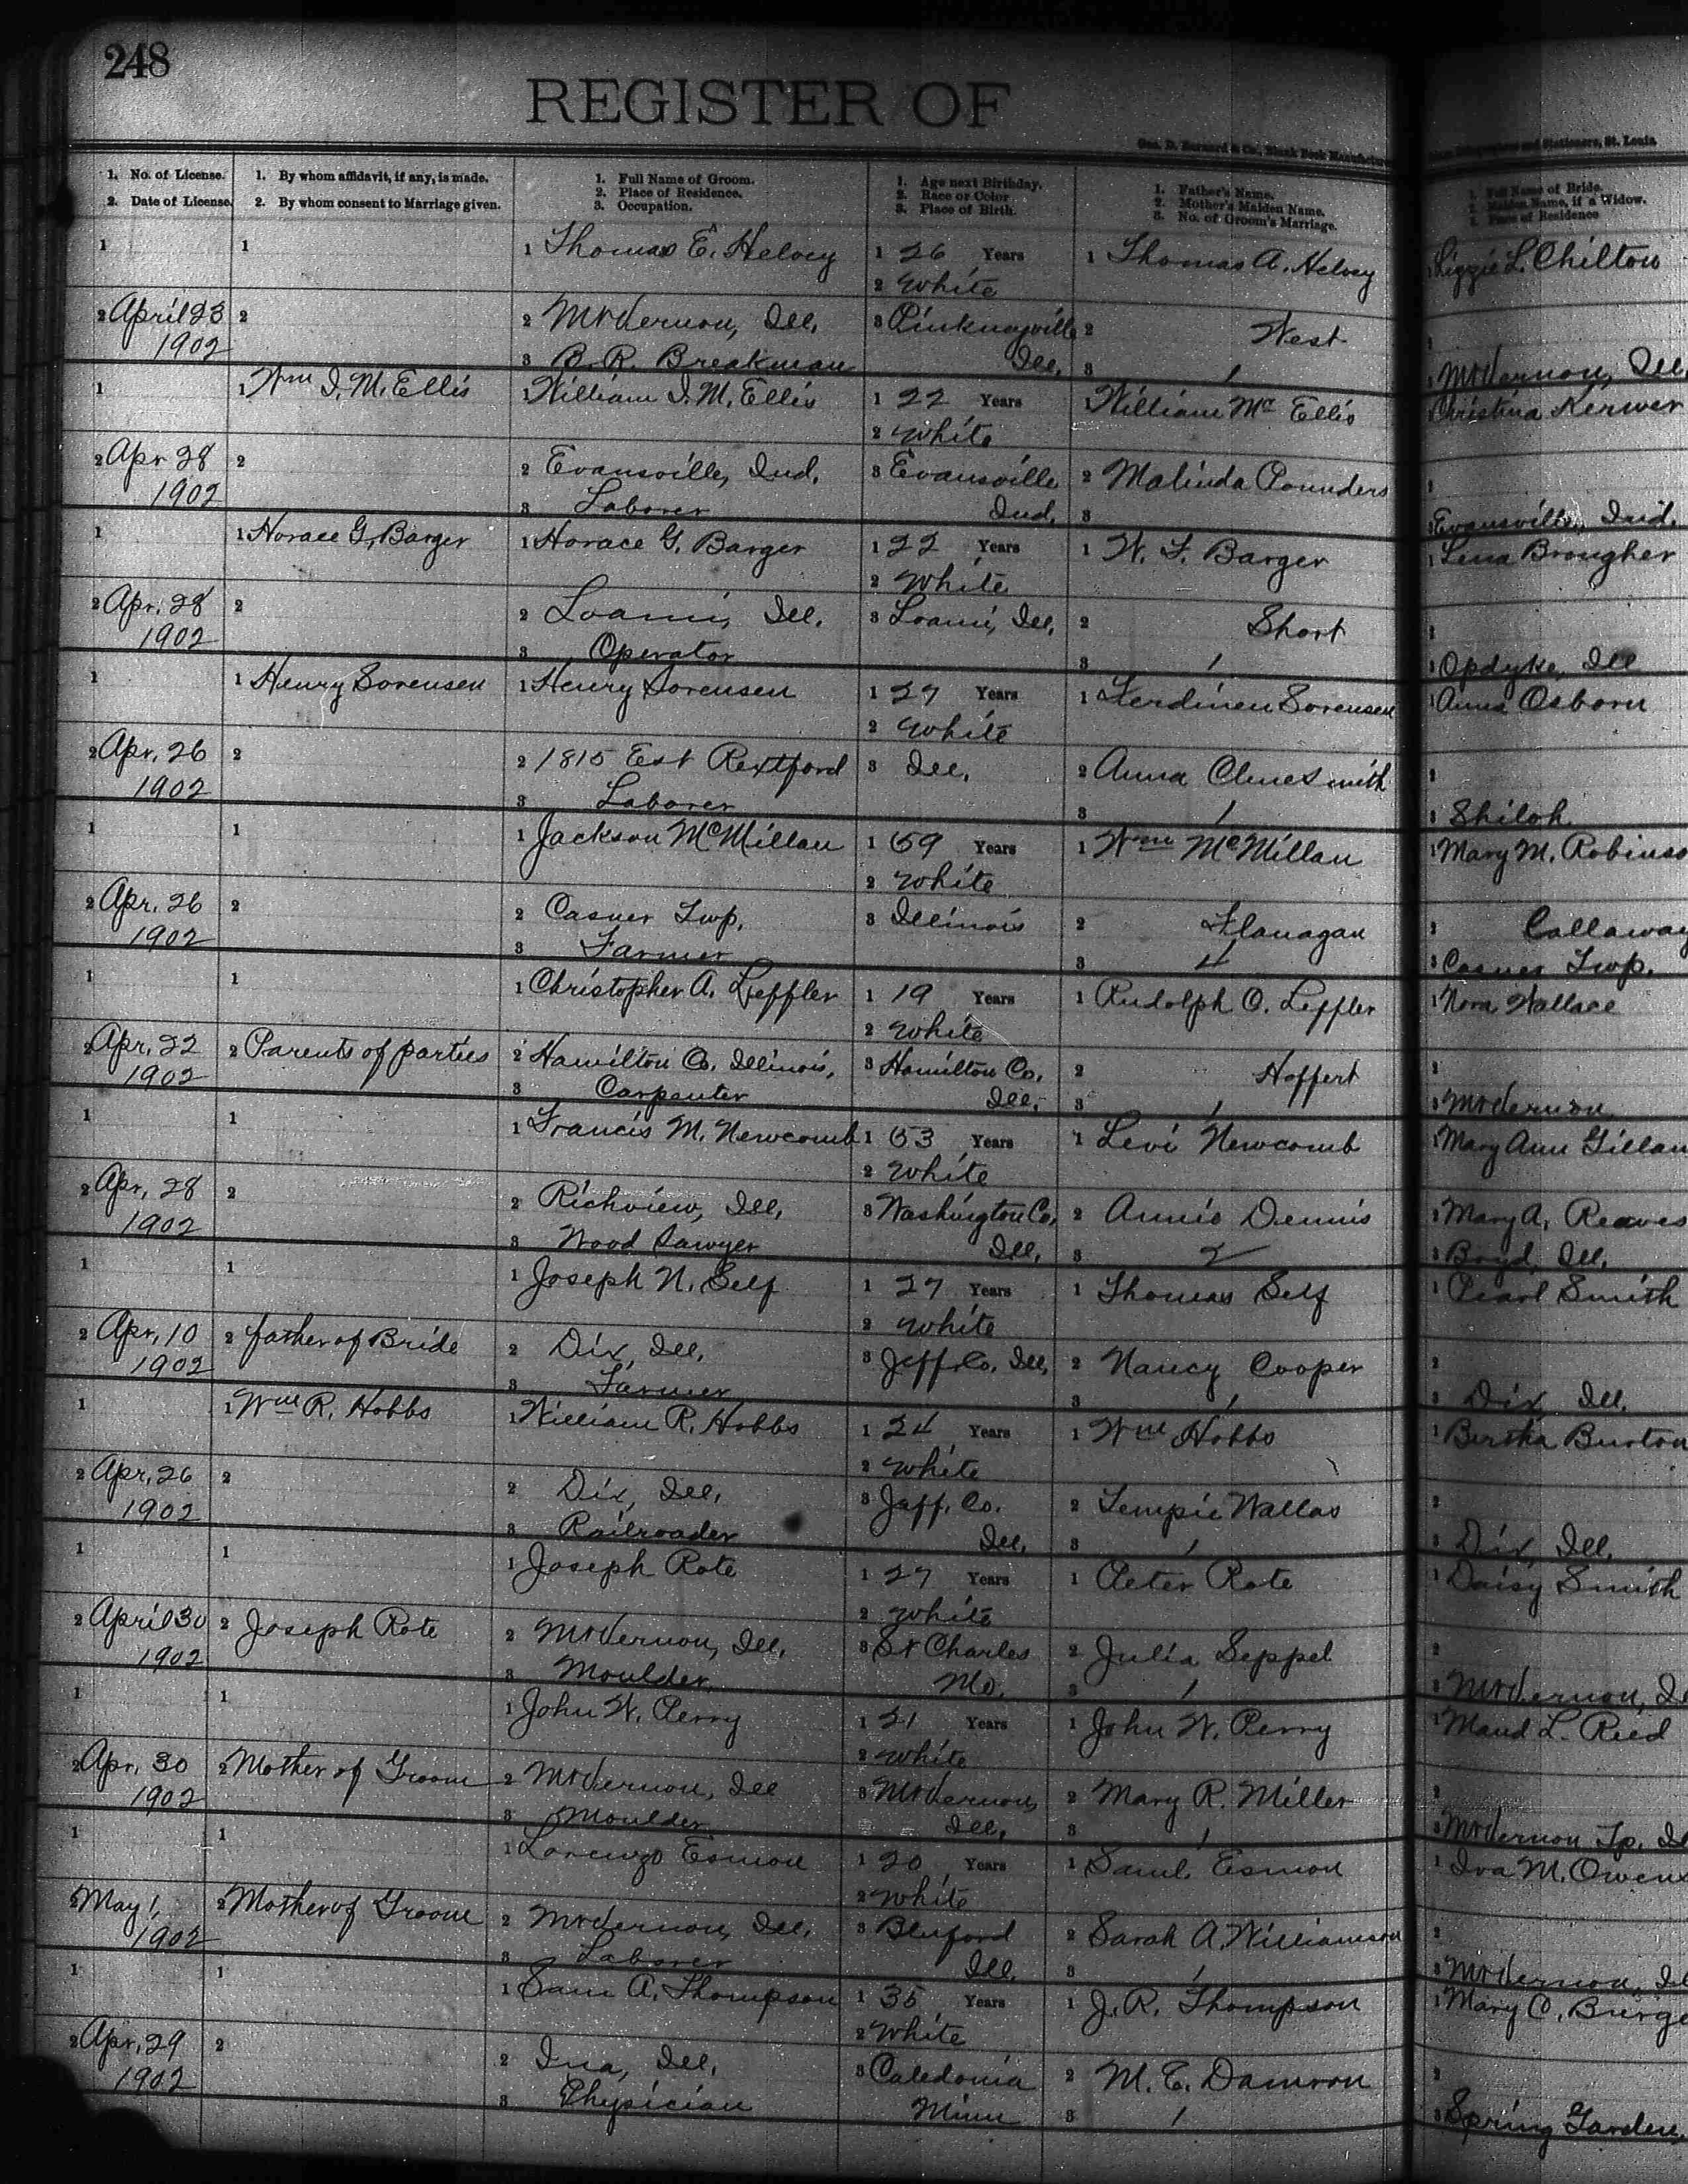 248
REGISTER OF
Geo. D. Barnard & Co., Blank Book Manufacturers
and Stationers, St. Louis.
1. No. of License.
2. Date of License.
1. By whom affidavit, if any, is made.
2. By whom consent to Marriage given.
1. Full Name of Groom.
2. Place of Residence.
3. Occupation.
1. Age next Birthday.
2. Race or Color
3. Place of Birth.
1. Father's Name.
2. Mother's Maiden Name.
3. No. of Groom's Marriage.
1. Full Name of Bride.
2. Maiden Name, if a Widow.
3. Place of Residence
1 1 1 Thomas E. Helvey 1 26 Years 1 Thomas A. Helvey 1 Lizzie L. Chilton
2 White
2 April 23 2 2 Mt Vernon, Ill. 3 Pinknayville 2 West 2
1902 3 B. R. Breakman Ill. 3 1 3 Mt Vernon, Ill.
1 1 Wm I. M. Ellis 1 William I. M. Ellis 1 22 Years 1 William Mc Ellis 1 Christina Kerwer
2 White
2 Apr 28 2 2 Evansville, Ind. 3 Evansville 2 Malinda Pounders 2
1902 3 Laborer Ind. 3 3 Evansville, Ind.
1 1 Horace G. Barger 1 Horace G. Barger 1 22 Years 1 W. F. Barger 1 Lena Brougher
2 White
2 Apr. 28 2 2 Loami, Ill. 3 Loami, Ill. 2 Short 2
1902 3 Operator 3 1 3 Opdyke, Ill
1 1 Henry Sorensen 1 Henry Sorensen 1 27 Years 1 Ferdinen Sorensen 1 Anna Osborn
2 White
2 Apr. 26 2 2 1815 East Rextford 3 Ill. 2 Anna Clinesmith 2
1902 3 Laborer 3 1 3 Shiloh
1 1 1 Jackson McMillan 1 59 Years 1 Wm McMillan 1 Mary M. Robinso
2 White
2 Apr. 26 2 2 Casner Twp. 3 Illinois 2 Flanagan 2 Callaway
1902 3 Farmer 3 4 3 Casner Twp.
1 1 1 Christopher A. Leffler 1 19 Years 1 Rudolph O. Leffler 1 Nora Wallace
2 White
2 Apr. 22 2 Parents of parties 2 Hamilton Co. Illinois, 3 Hamilton Co. 2 Hoffert 2
1902 3 Carpenter Ill. 3 1 3 Mt Vernon
1 1 1 Francis M. Newcomb 1 53 Years 1 Levi Newcomb 1 Mary Ann Gillan
2 White
2 Apr. 28 2 2 Richview, Ill. 3 Washington Co. 2 Annie Dennis 2 Mary A. Reaves
1902 3 Wood Sawyer Ill. 3 2 3 Boyd, Ill.
1 1 1 Joseph N. Self 1 27 Years 1 Thomas Self 1 Pearl Smith
2 White
2 Apr. 10 2 father of Bride 2 Dix, Ill. 3 Jeff. Co. Ill. 2 Nancy Cooper 2
1902 3 Farmer 3 1 3 Dix, Ill.
1 1 Wm R. Hobbs 1 William R. Hobbs 1 24 Years 1 Wm Hobbs 1 Bertha Burton
2 White
2 Apr. 26 2 2 Dix, Ill. 3 Jeff. Co. 2 Tempie Wallas 2
1902 3 Railroader Ill. 3 1 3 Dix, Ill.
1 1 1 Joseph Rote 1 27 Years 1 Peter Rote 1 Daisy Smith
2 White
2 April 30 2 Joseph Rote 2 Mt Vernon, Ill. 3 St Charles 2 Julia Seppel 2
1902 3 Moulder Mo. 3 1 3 Mt Vernon, Il
1 1 1 John W. Perry 1 21 Years 1 John W. Perry 1 Maud L. Reed
2 White
2 Apr. 30 2 Mother of Groom 2 Mt Vernon, Ill 3 Mt Vernon, 2 Mary R. Miller 2
1902 3 Moulder Ill. 3 1 3 Mt Vernon Tp. Il
1 1 1 Lorenzo Esmon 1 20 Years 1 Saml. Esmon 1 Iva M. Owens
2 White
2 May 1, 2 Mother of Groom 2 Mt Vernon, Ill. 3 Bluford 2 Sarah A. Williamson 2
1902 3 Laborer Ill. 3 1 3 Mt Vernon, Il
1 1 1 Sam A. Thompson 1 35 Years 1 J. R. Thompson 1 Mary O. Burge
2 White
2 Apr. 29 2 2 Ina, Ill. 3 Caledonia 2 M. E. Damron 2
1902 3 Physician Minn 3 1 3 Spring Garden,